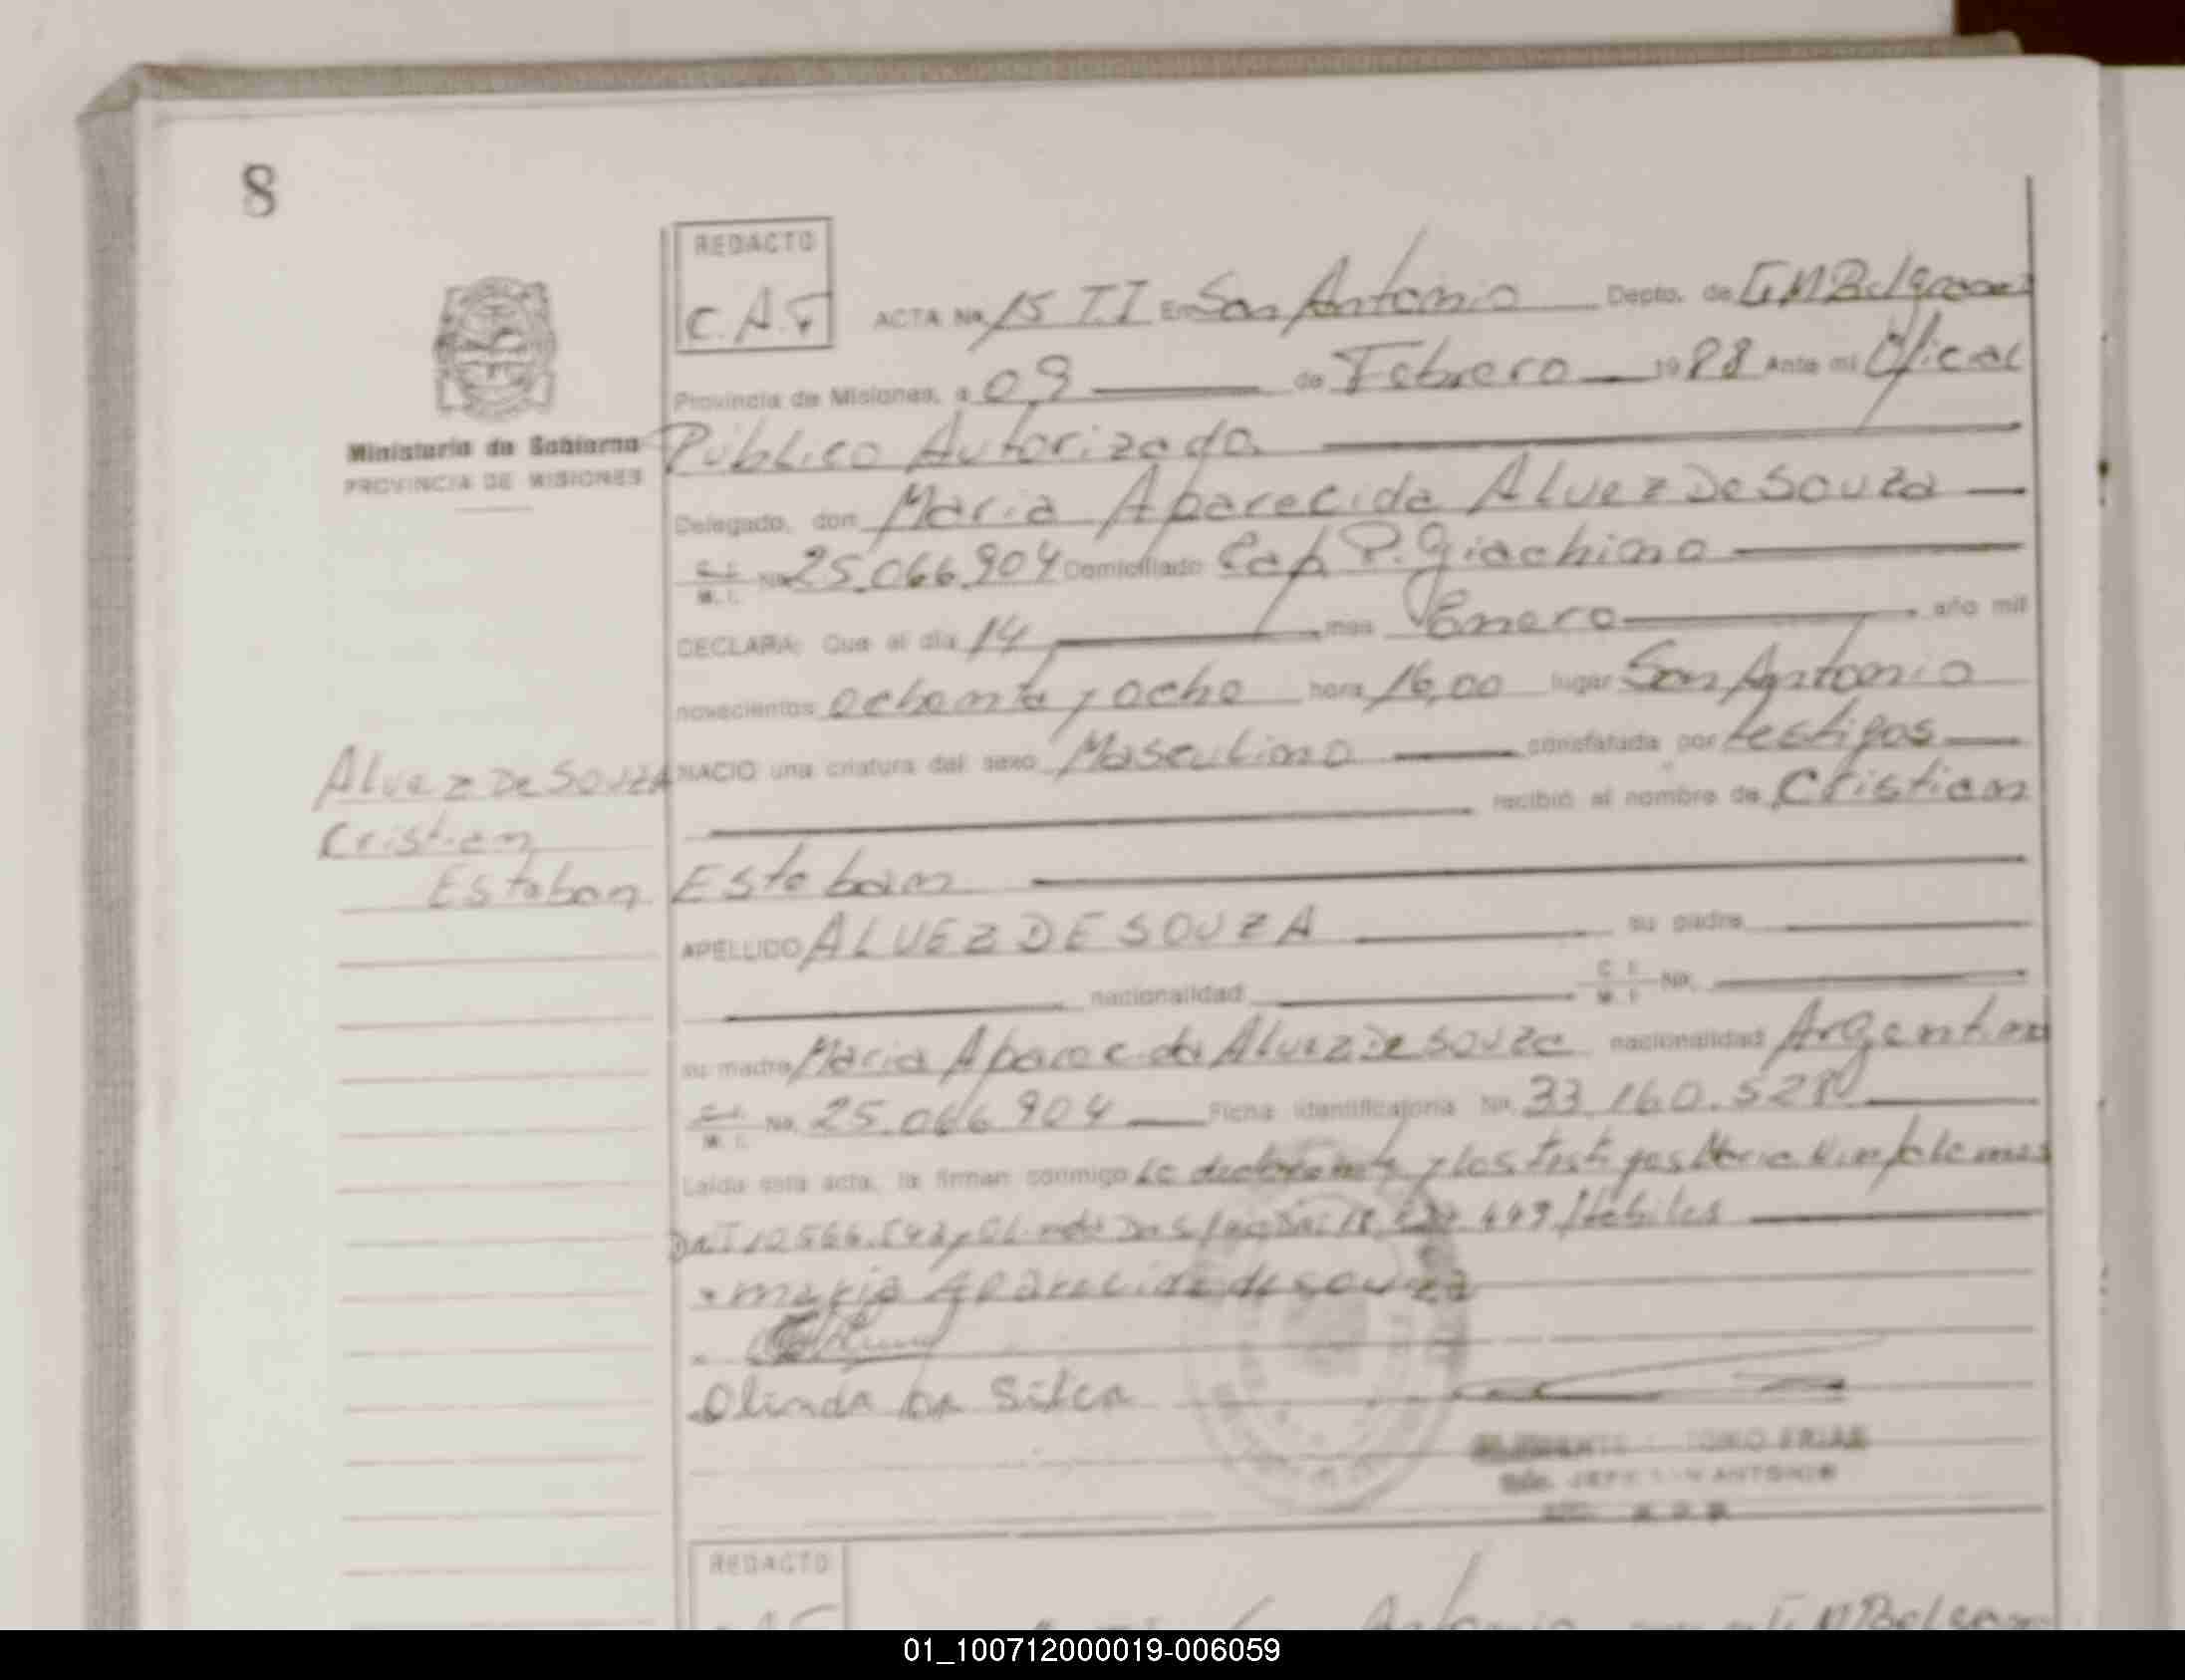 8
REDACTO
C.A.F
ACTA No. 15 T.I En San Antonio Depto. de G M Belgrano
Provincia de Misiones, a 09 de Febrero 1988 Ante mi Oficial
Ministerio de Gobierno
PROVINCIA DE MISIONES
Público Autorizado
Delegado, don Maria Aparecida Alvez De Souza
C. I. M. I. No. 25.066.904 Domiciliado Cap P. Giachino
DECLARA: Que el día 14 mes Enero año mil
novecientos ochenta y ocho hora 16,00 lugar San Antonio
NACIO una criatura del sexo Masculino constatada por testigos
recibió el nombre de Cristian
Esteban
Alvez De Souza
Cristian
Esteban
APELLIDO ALVEZ DE SOUZA su padre
nacionalidad C. I. M. I. No.
su madre Maria Aparecida Alvez De Souza nacionalidad Argentina
C. I. M. I. No. 25.066.904 Ficha identificatoria No. 33.160.528
Leída esta acta, la firman conmigo la declarante y los testigos Maria
DNI Habiles
maria Aparecida de souza
Olinda da Silva
FRIAS
JEFE SAN ANTONIO
REDACTO
Antonio G M Belgrano
01_100712000019-006059